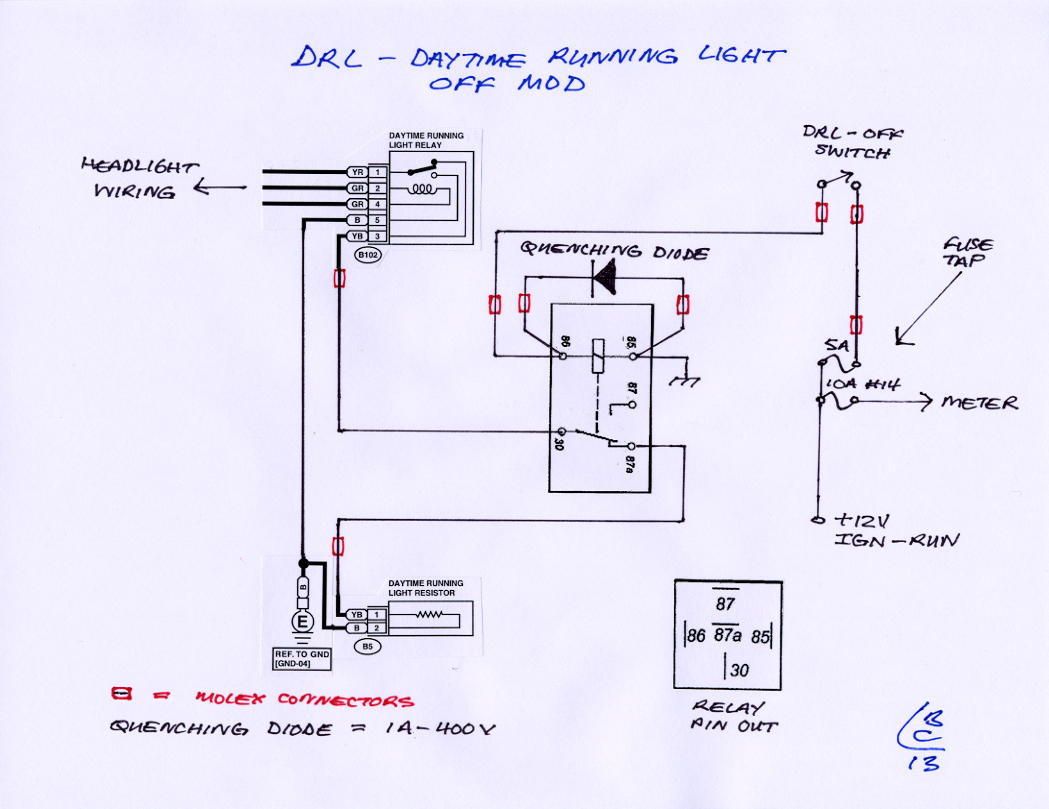 DRL - DAYTIME RUNNING LIGHT
OFF MOD
HEADLIGHT
WIRING
DAYTIME RUNNING
LIGHT RELAY
YR 1
GR 2
GR 4
B 5
YB 3
B102
DRL-OFF
SWITCH
FUSE
TAP
QUENCHING DIODE
86
85
87
30
87a
5A
10A #14
METER
+12V
IGN-RUN
B
E
REF. TO GND
[GND-04]
DAYTIME RUNNING
LIGHT RESISTOR
YB 1
B 2
B5
87
86 87a 85
30
RELAY
PIN OUT
= MOLEX CONNECTORS
QUENCHING DIODE = 1A-400V
B
C
13